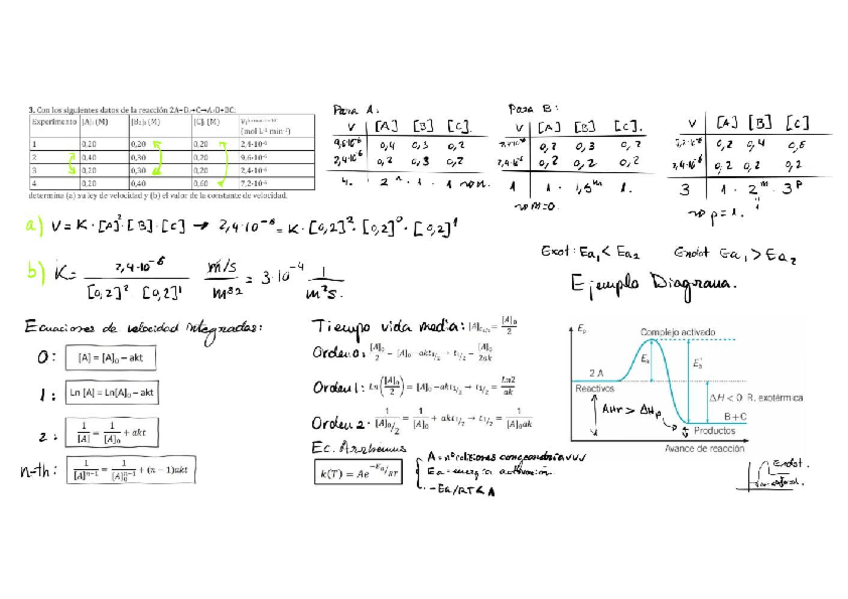 3. Con los siguientes datos de la reacción 2A+B₂→C→A₂B+BC:
Experimento [A]₀ (M) [B₂]₀ (M) [C]₀ (M)
(mol L⁻¹ min⁻¹)
1 0,20 0,20 0,20 2,4·10⁻⁶
2 0,40 0,30 0,20 9,6·10⁻⁶
3 0,20 0,30 0,20 2,4·10⁻⁶
4 0,20 0,40 0,60 7,2·10⁻⁶
determina (a) su ley de velocidad y (b) el valor de la constante de velocidad.
Para A:
V [A] [B] [C].
9,6·10⁻⁶ 0,4 0,3 0,2
2,4·10⁻⁶ 0,2 0,3 0,2
4. 2ⁿ · 1 · 1
Para B:
V [A] [B] [C].
0,2 0,3 0,2
2,4·10⁻⁶ 0,2 0,2 0,2
1 1 · 1,5ᵐ 1.
m=0.
V [A] [B] [C]
7,2·10⁻⁶ 0,2 0,4 0,6
2,4·10⁻⁶ 0,2 0,2 0,2
3 1 · 2ᵐ · 3ᵖ
p=1.
a) V = K · [A]² · [B] · [C] → 2,4·10⁻⁶ = K · [0,2]² · [0,2]⁰ · [0,2]¹
b) K = 2,4·10⁻⁶ / [0,2]² · [0,2]¹ m/s / m³² = 3·10⁻⁴ 1 / m²s.
Exot: Ea₁ < Ea₂ Endot Ea₁ > Ea₂
Ejemplo Diagrama.
Ecuaciones de velocidad integradas:
0: [A] = [A]₀ – akt
1: Ln [A] = Ln[A]₀ – akt
2: 1/[A] = 1/[A]₀ + akt
n-th: 1/[A]ⁿ⁻¹ = 1/[A]₀ⁿ⁻¹ + (n – 1)akt
Tiempo vida media: [A]t₁/₂ = [A]₀/2
Orden 0: [A]₀/2 = [A]₀ – akt₁/₂ → t₁/₂ = [A]₀/2ak
Orden 1: Ln([A]₀/2) = [A]₀ – akt₁/₂ → t₁/₂ = Ln2/ak
Orden 2: 1/[A]₀/2 = 1/[A]₀ + akt₁/₂ → t₁/₂ = 1/[A]₀ak
Ec. Arrhenius
k(T) = Ae^–Ea/RT
Ea = energía activación
Eₚ
Complejo activado
2 A
Eₐ
Eₐ'
Reactivos
ΔH < 0 R. exotérmica
ΔHr > ΔHp
B + C
Productos
Avance de reacción
Endot.